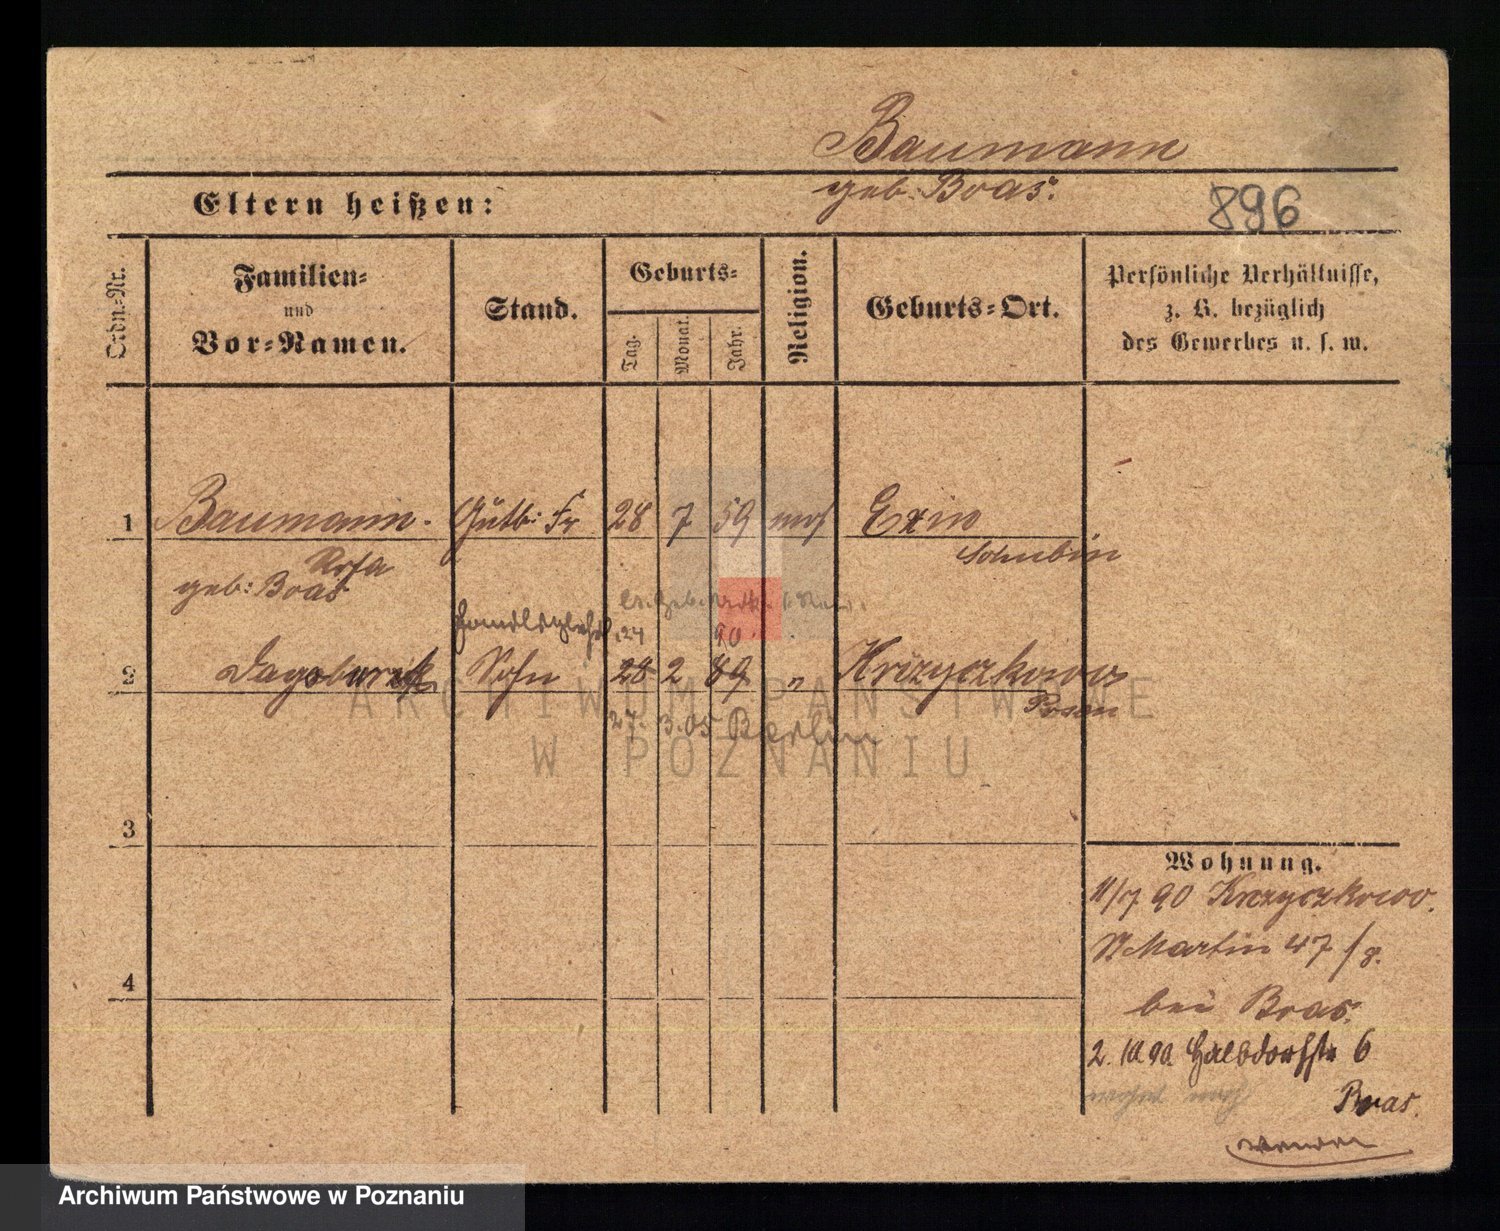 Baumann
geb. Boas.
Eltern heißen:
896
Ordn.=Nr.
Familien=
und
Vor=Namen.
Stand.
Geburts=
Tag.
Monat.
Jahr.
Religion.
Geburts=Ort.
Persönliche Verhältnisse,
z. B. bezüglich
des Gewerbes u. s. w.
1
Baumann. Gutb: Fr 28 7 59 mos Exin
Schubin
Rosa
geb: Boas
Handlgslehrl
24 90
2
Dagobert Sohn 28 2 89 " Krzyczkowo
Posen
27. 3. 05 Berlin
3
4
Wohnung.
11/7 90 Krzyczkowo.
St Martin 47 /g.
bei Boas.
2. 10. 90. Halbdorfstr 6
wohnt noch
Boas.
wenden
ARCHIWUM PAŃSTWOWE
W POZNANIU
Archiwum Państwowe w Poznaniu